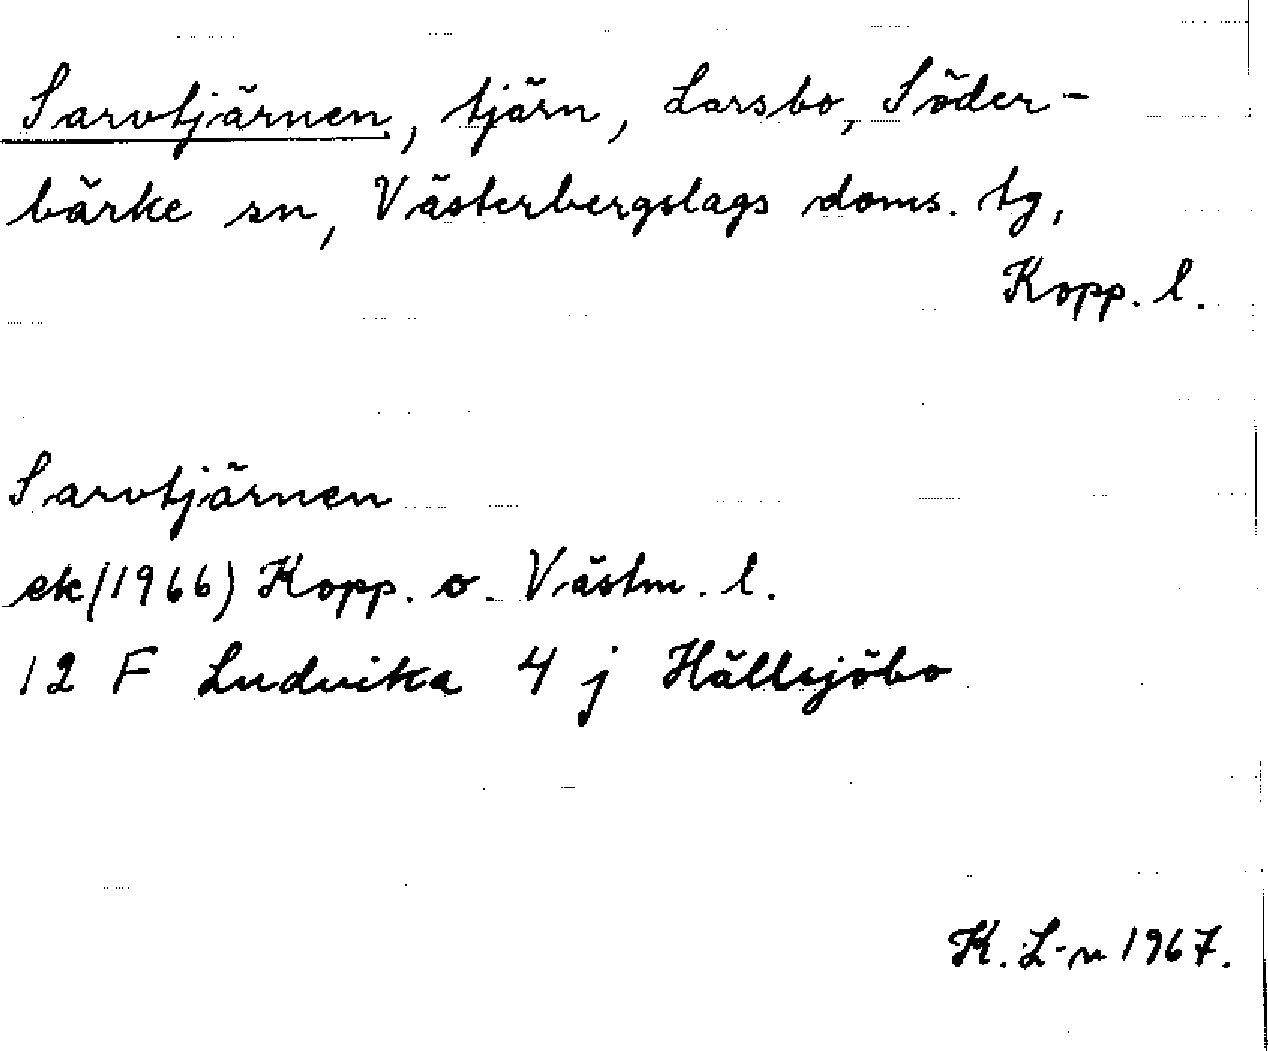 Sarvtjärnen, tjärn, Larsbo, Söder-
bärke sn, Västerbergslags doms. tg,
Kopp. l.
Sarvtjärnen
ek (1966) Kopp. o. Västm. l.
12 F Ludvika 4 j Hällsjöbo
K. L-n 1967.